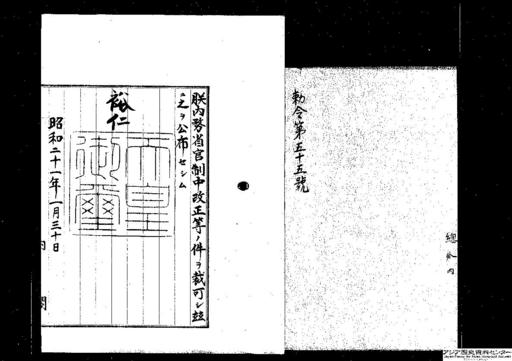 勅令第五十五號
朕内務省官制中改正等ノ件ヲ裁可シ玆
ニ之ヲ公布セシム
裕仁
天皇御璽
昭和二十一年一月三十日
内閣
アジア歴史資料センター